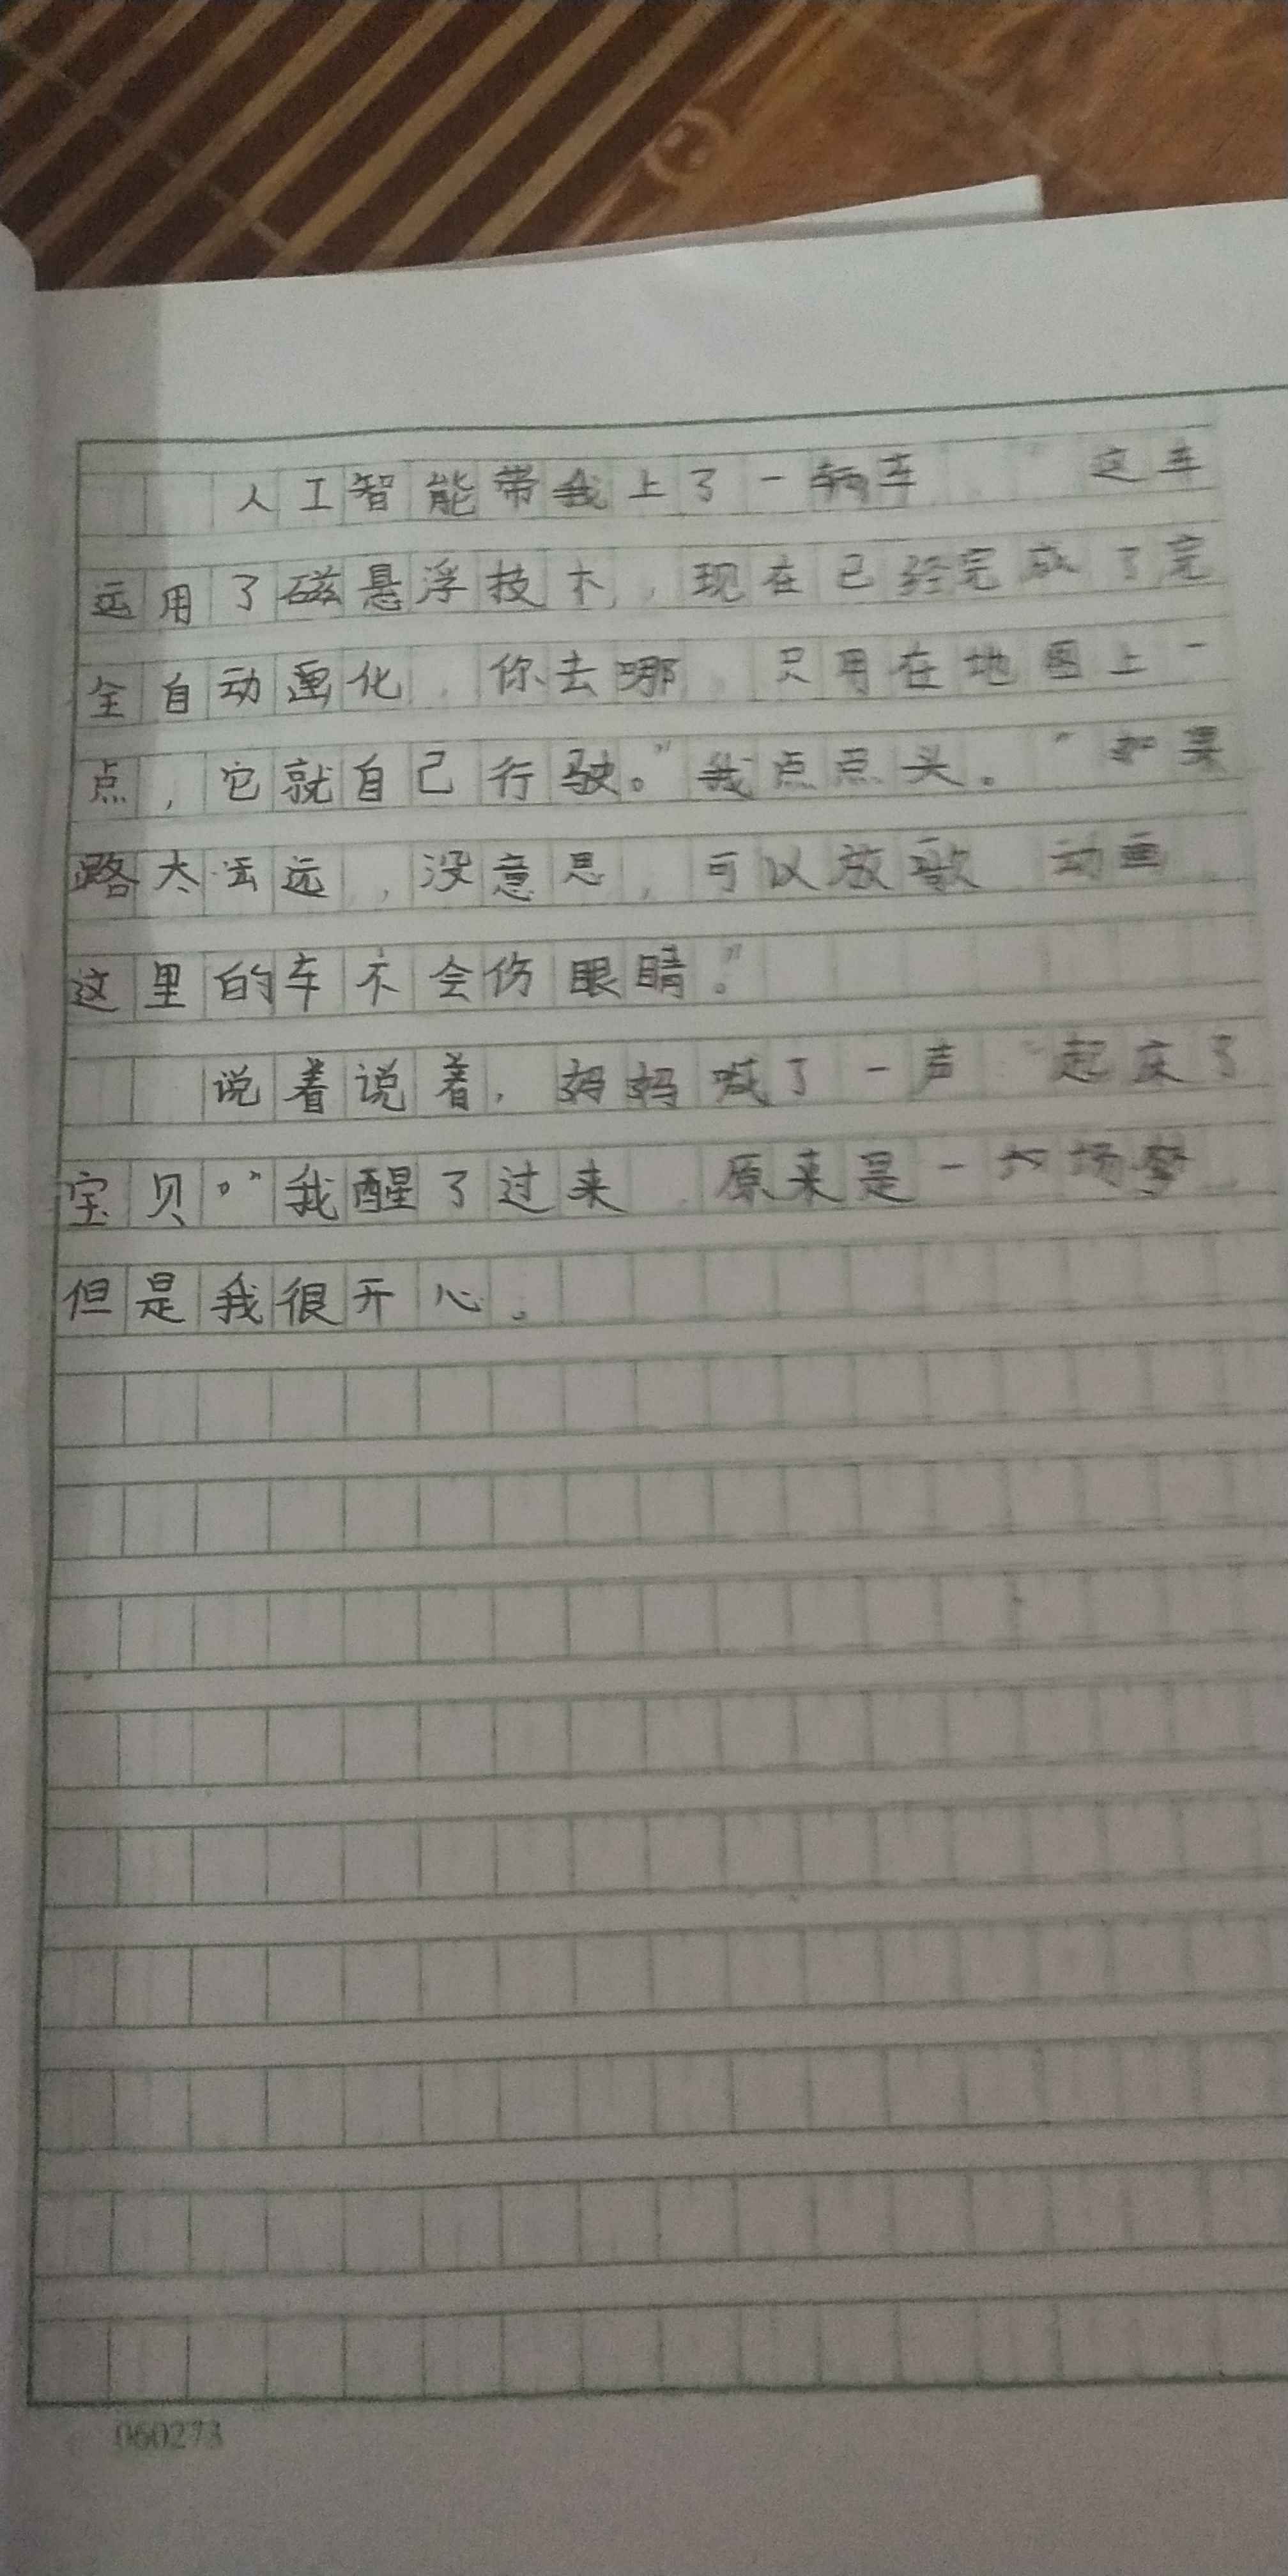 人工智能带我上了一辆车 “这车
运用了磁悬浮技术，现在已经完成了完
全自动画化，你去哪，只用在地图上一
点，它就自己行驶。”我点点头。“如果
路太远，没意思，可以放歌 动画
这里的车不会伤眼睛。”
说着说着，妈妈喊了一声“起床了
宝贝。”我醒了过来，原来是一场梦
但是我很开心。
060273